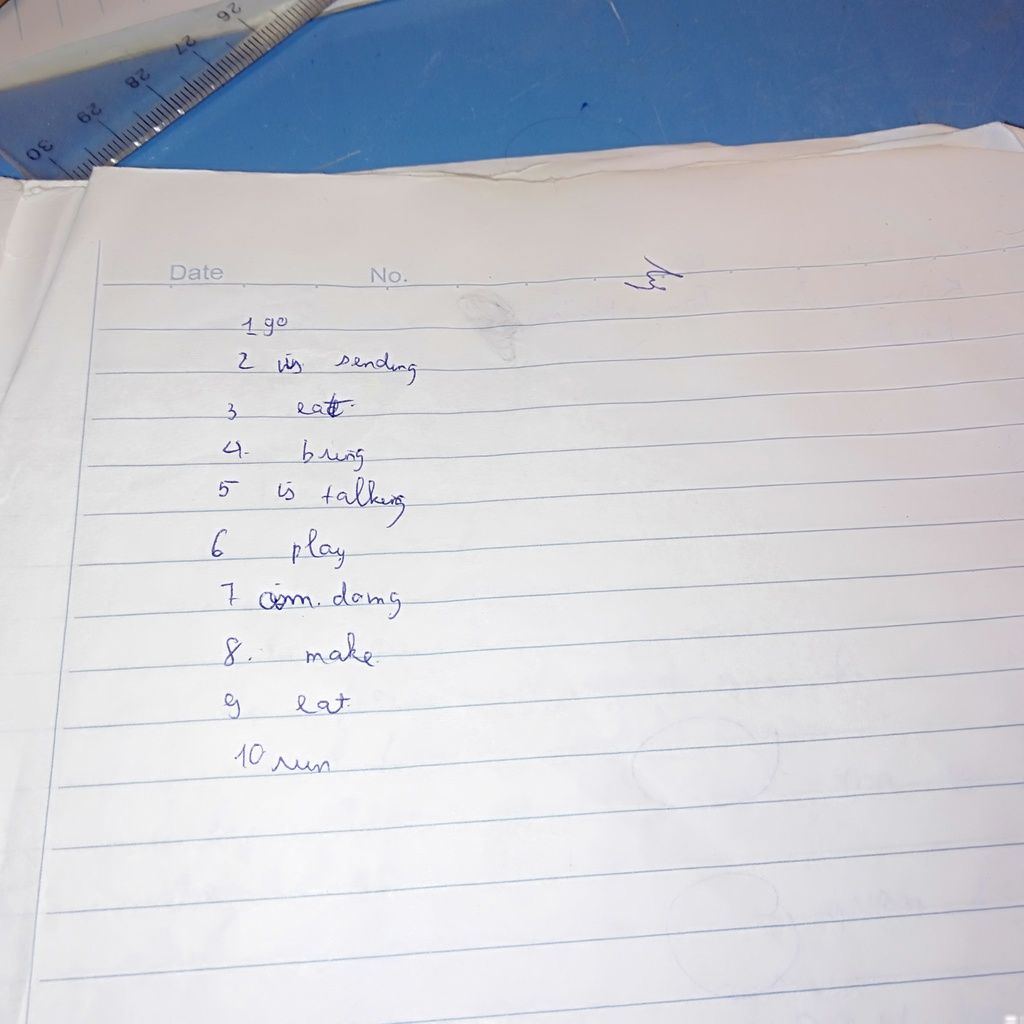 26
27
28
29
30
Date No.
1 go
2 is sending
3 eat.
4. bring
5 is talking
6 play
7 am. doing
8. make.
9 eat.
10 run